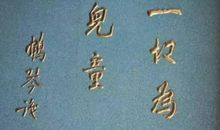 一切為
兒童
鶴琴題